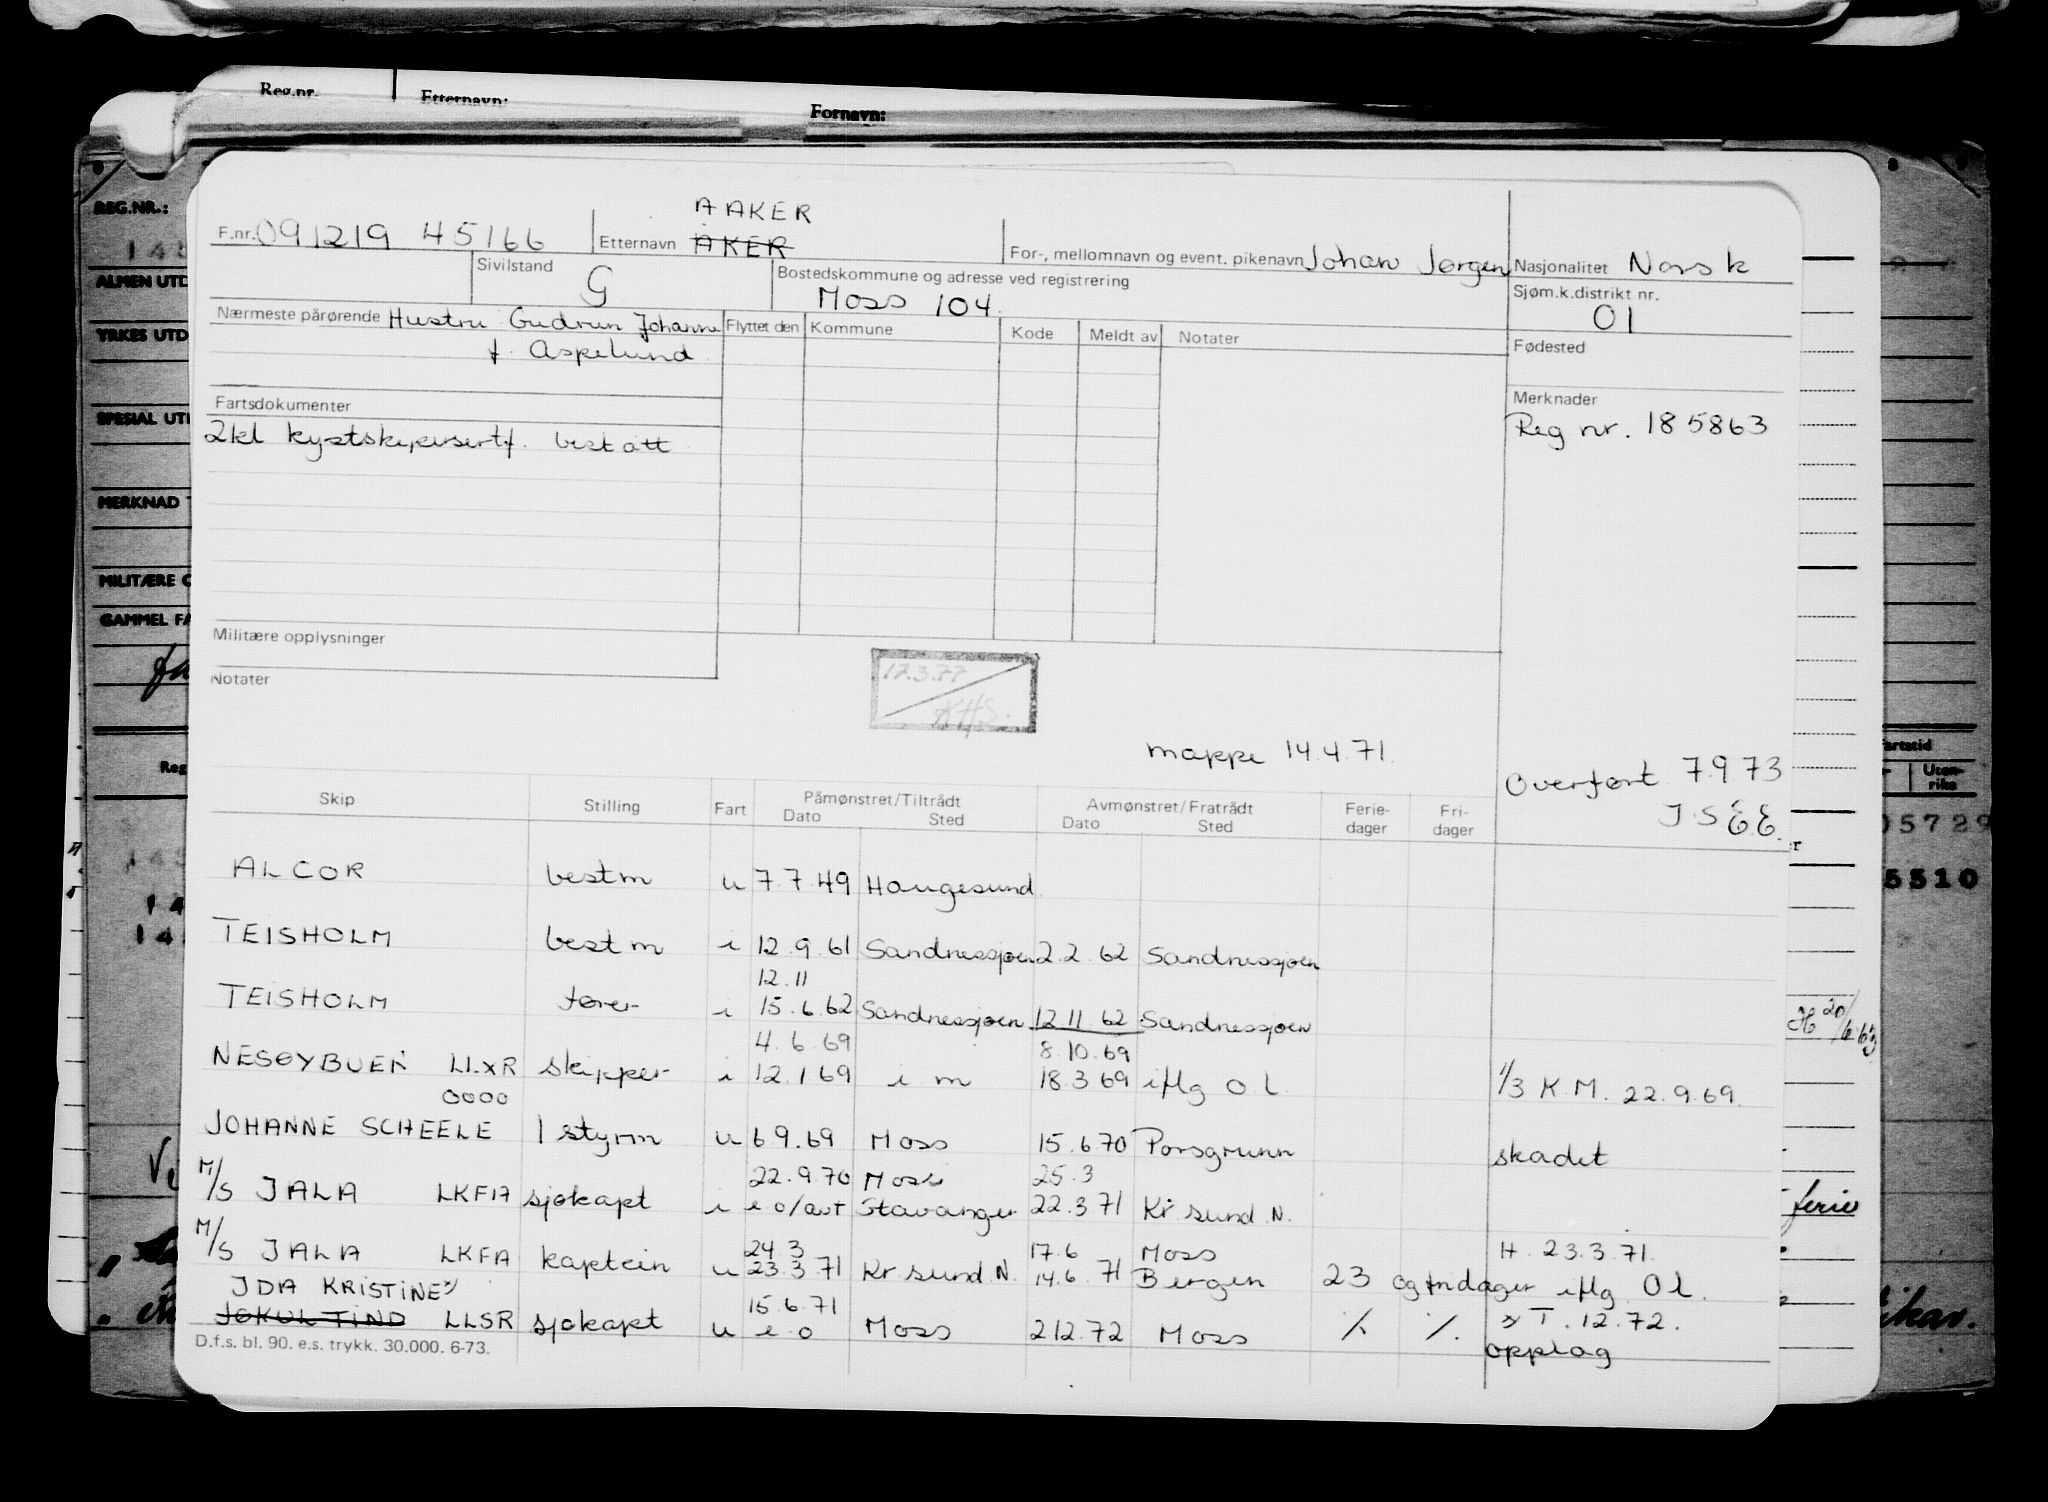 Reg.nr. Etternavn: Fornavn:
REG.NR.:
ALMEN UTD
YRKES UTD
SPESIAL UT
MERKNAD
MILITÆRE
GAMMEL
AAKER
F.nr. 091219 45166 Etternavn AKER For-, mellomnavn og event. pikenavn Johan Jørgen Nasjonalitet Norsk
Sivilstand G Bostedskommune og adresse ved registrering Moss 104. Sjøm.k.distrikt nr. 01
Nærmeste pårørende Hustru Gudrun Johanne Flyttet den Kommune Kode Meldt av Notater Fødested
f. Aspelund
Fartsdokumenter Merknader
2kl kystskippersertf. bestått Reg nr. 185863
Militære opplysninger
Notater
17.3.77
KHS.
mappe 14.4.71.
Overført 7.9 73
Skip Stilling Fart Påmønstret/Tiltrådt Avmønstret/Fratrådt Ferie- Fri-
Dato Sted Dato Sted dager dager
ALCOR bestm u 7.7.49 Haugesund
TEISHOLM bestm i 12.9.61 Sandnessjøen 2.2.62 Sandnessjøen
12.11
TEISHOLM fører i 15.6.62 Sandnessjøen 12 11 62 Sandnessjøen
4.6.69 8.10.69
NESØYBUEN LLXR skipper i 12.1 69 i m 18.3 69 iflg O.l. 1/3 K.M. 22.9.69.
OOOO
JOHANNE SCHEELE 1 styrm u 6 9.69 Moss 15.6 70 Porsgrunn skadet
22.9.70 Moss 25.3
M/S JALA LKFA sjøkapt i e o/avt Stavanger 22.3 71 Kr.sund N.
24 3 17.6 Moss H. 23.3.71.
M/S JALA LKFA kaptein u 23.3 71 Kr sund N. 14.6.71 Bergen 23 og fridager iflg O l.
IDA KRISTINE
15.6.71
JØKULTIND LLSR sjøkapt u e o Moss 2 12.72 Moss T. 12.72.
opplag
D.f.s. bl. 90. e.s. trykk. 30.000. 6-73.
ferie